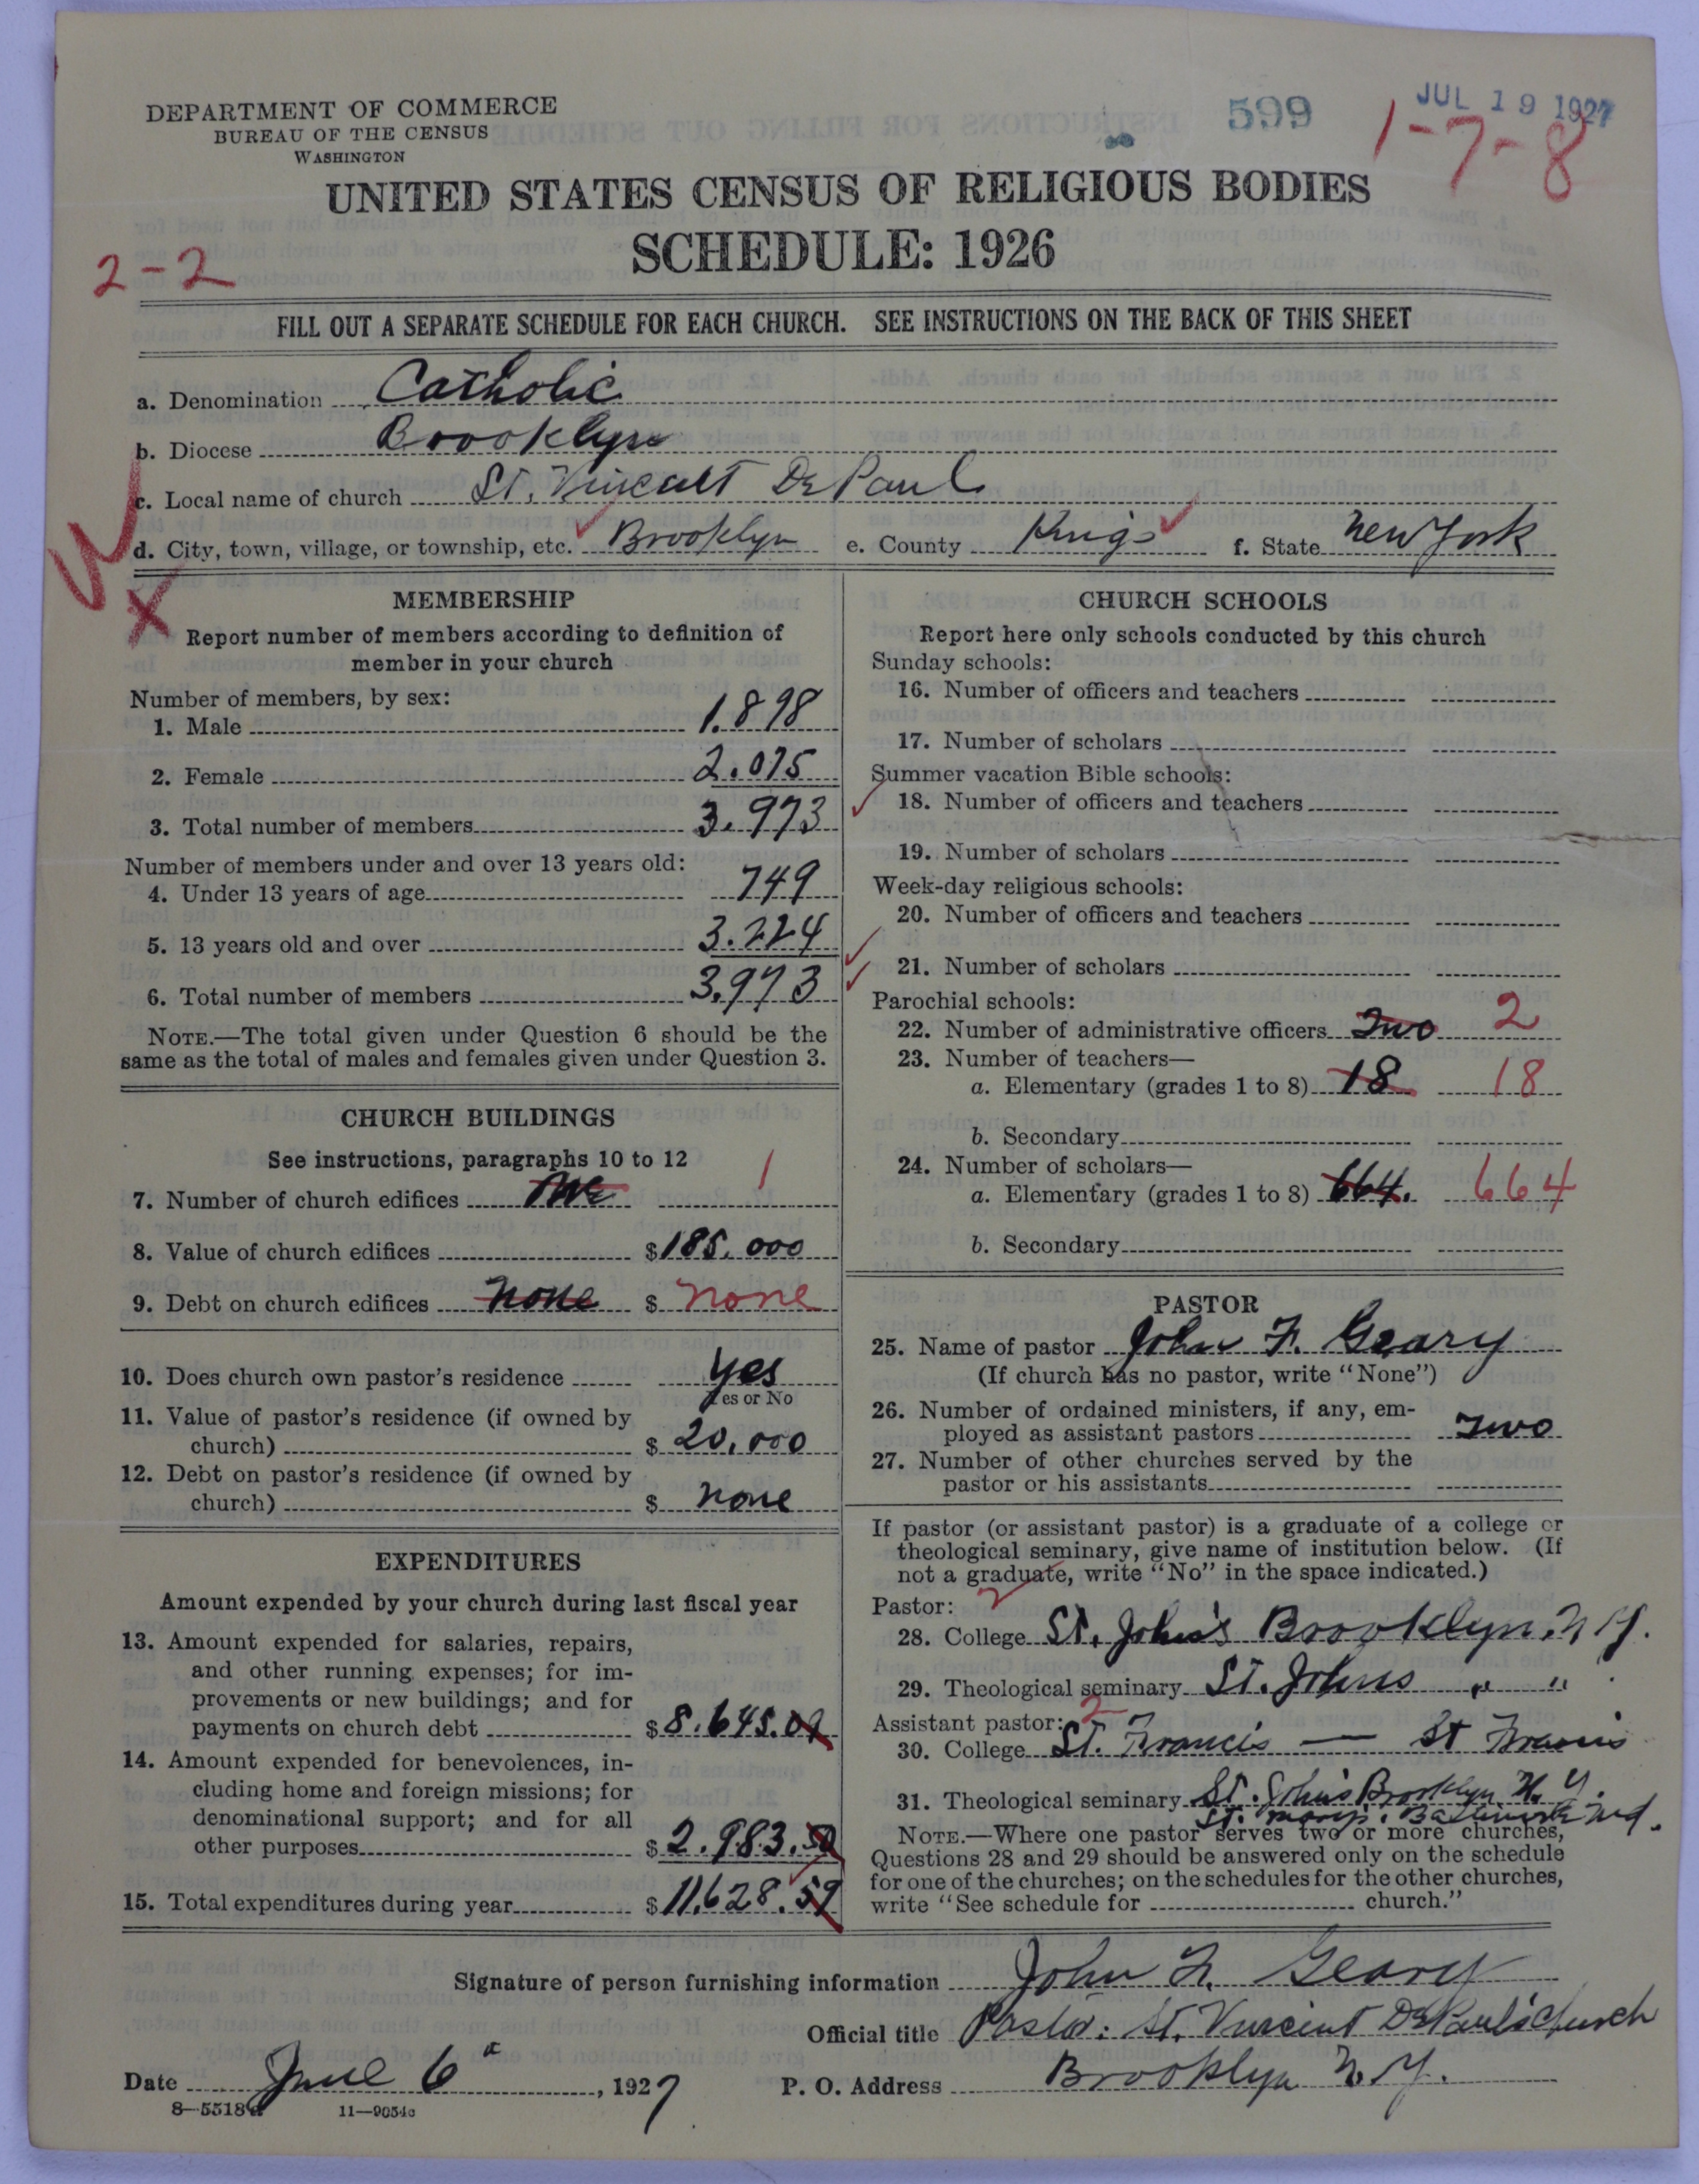 DEPARTMENT OF COMMERCE
BUREAU OF THE CENSUS
WASHINGTON
599
JUL 19 1927
1-7-8
UNITED STATES CENSUS OF RELIGIOUS BODIES
SCHEDULE: 1926
2-2
FILL OUT A SEPARATE SCHEDULE FOR EACH CHURCH. SEE INSTRUCTIONS ON THE BACK OF THIS SHEET
a. Denomination Catholic
b. Diocese Brooklyn
c. Local name of church St. Vincent De Paul
d. City, town, village, or township, etc. Brooklyn e. County Kings f. State New York
MEMBERSHIP
Report number of members according to definition of
member in your church
Number of members, by sex:
1. Male 1.898
2. Female 2.075
3. Total number of members 3.973
Number of members under and over 13 years old:
4. Under 13 years of age 749
5. 13 years old and over 3.224
6. Total number of members 3,973
NOTE.—The total given under Question 6 should be the
same as the total of males and females given under Question 3.
CHURCH BUILDINGS
See instructions, paragraphs 10 to 12
7. Number of church edifices One 1
8. Value of church edifices $185.000
9. Debt on church edifices none $ none
10. Does church own pastor's residence yes
Yes or No
11. Value of pastor's residence (if owned by
church) $ 20.000
12. Debt on pastor's residence (if owned by
church) $ none
EXPENDITURES
Amount expended by your church during last fiscal year
13. Amount expended for salaries, repairs,
and other running expenses; for im-
provements or new buildings; and for
payments on church debt $8.645.09
14. Amount expended for benevolences, in-
cluding home and foreign missions; for
denominational support; and for all
other purposes $2.983.50
15. Total expenditures during year $11,628.59
CHURCH SCHOOLS
Report here only schools conducted by this church
Sunday schools:
16. Number of officers and teachers
17. Number of scholars
Summer vacation Bible schools:
18. Number of officers and teachers
19. Number of scholars
Week-day religious schools:
20. Number of officers and teachers
21. Number of scholars
Parochial schools:
22. Number of administrative officers Two 2
23. Number of teachers—
a. Elementary (grades 1 to 8) 18 18
b. Secondary
24. Number of scholars—
a. Elementary (grades 1 to 8) 664. 664
b. Secondary
PASTOR
25. Name of pastor John F. Geary
(If church has no pastor, write "None")
26. Number of ordained ministers, if any, em-
ployed as assistant pastors Two
27. Number of other churches served by the
pastor or his assistants
If pastor (or assistant pastor) is a graduate of a college or
theological seminary, give name of institution below. (If
not a graduate, write "No" in the space indicated.)
Pastor: 2
28. College St. John's Brooklyn, N.Y.
29. Theological seminary St. Johns " "
Assistant pastor: 2
30. College St. Francis — St Francis
31. Theological seminary St. John's Brooklyn N.Y.
St. Mary's. Baltimore Md.
NOTE.—Where one pastor serves two or more churches,
Questions 28 and 29 should be answered only on the schedule
for one of the churches; on the schedules for the other churches,
write "See schedule for church."
Signature of person furnishing information John F. Geary
Official title Pastor: St. Vincent De Paul's Church
Date June 6, 1927 P. O. Address Brooklyn N.Y.
8—5518a 11—9054c